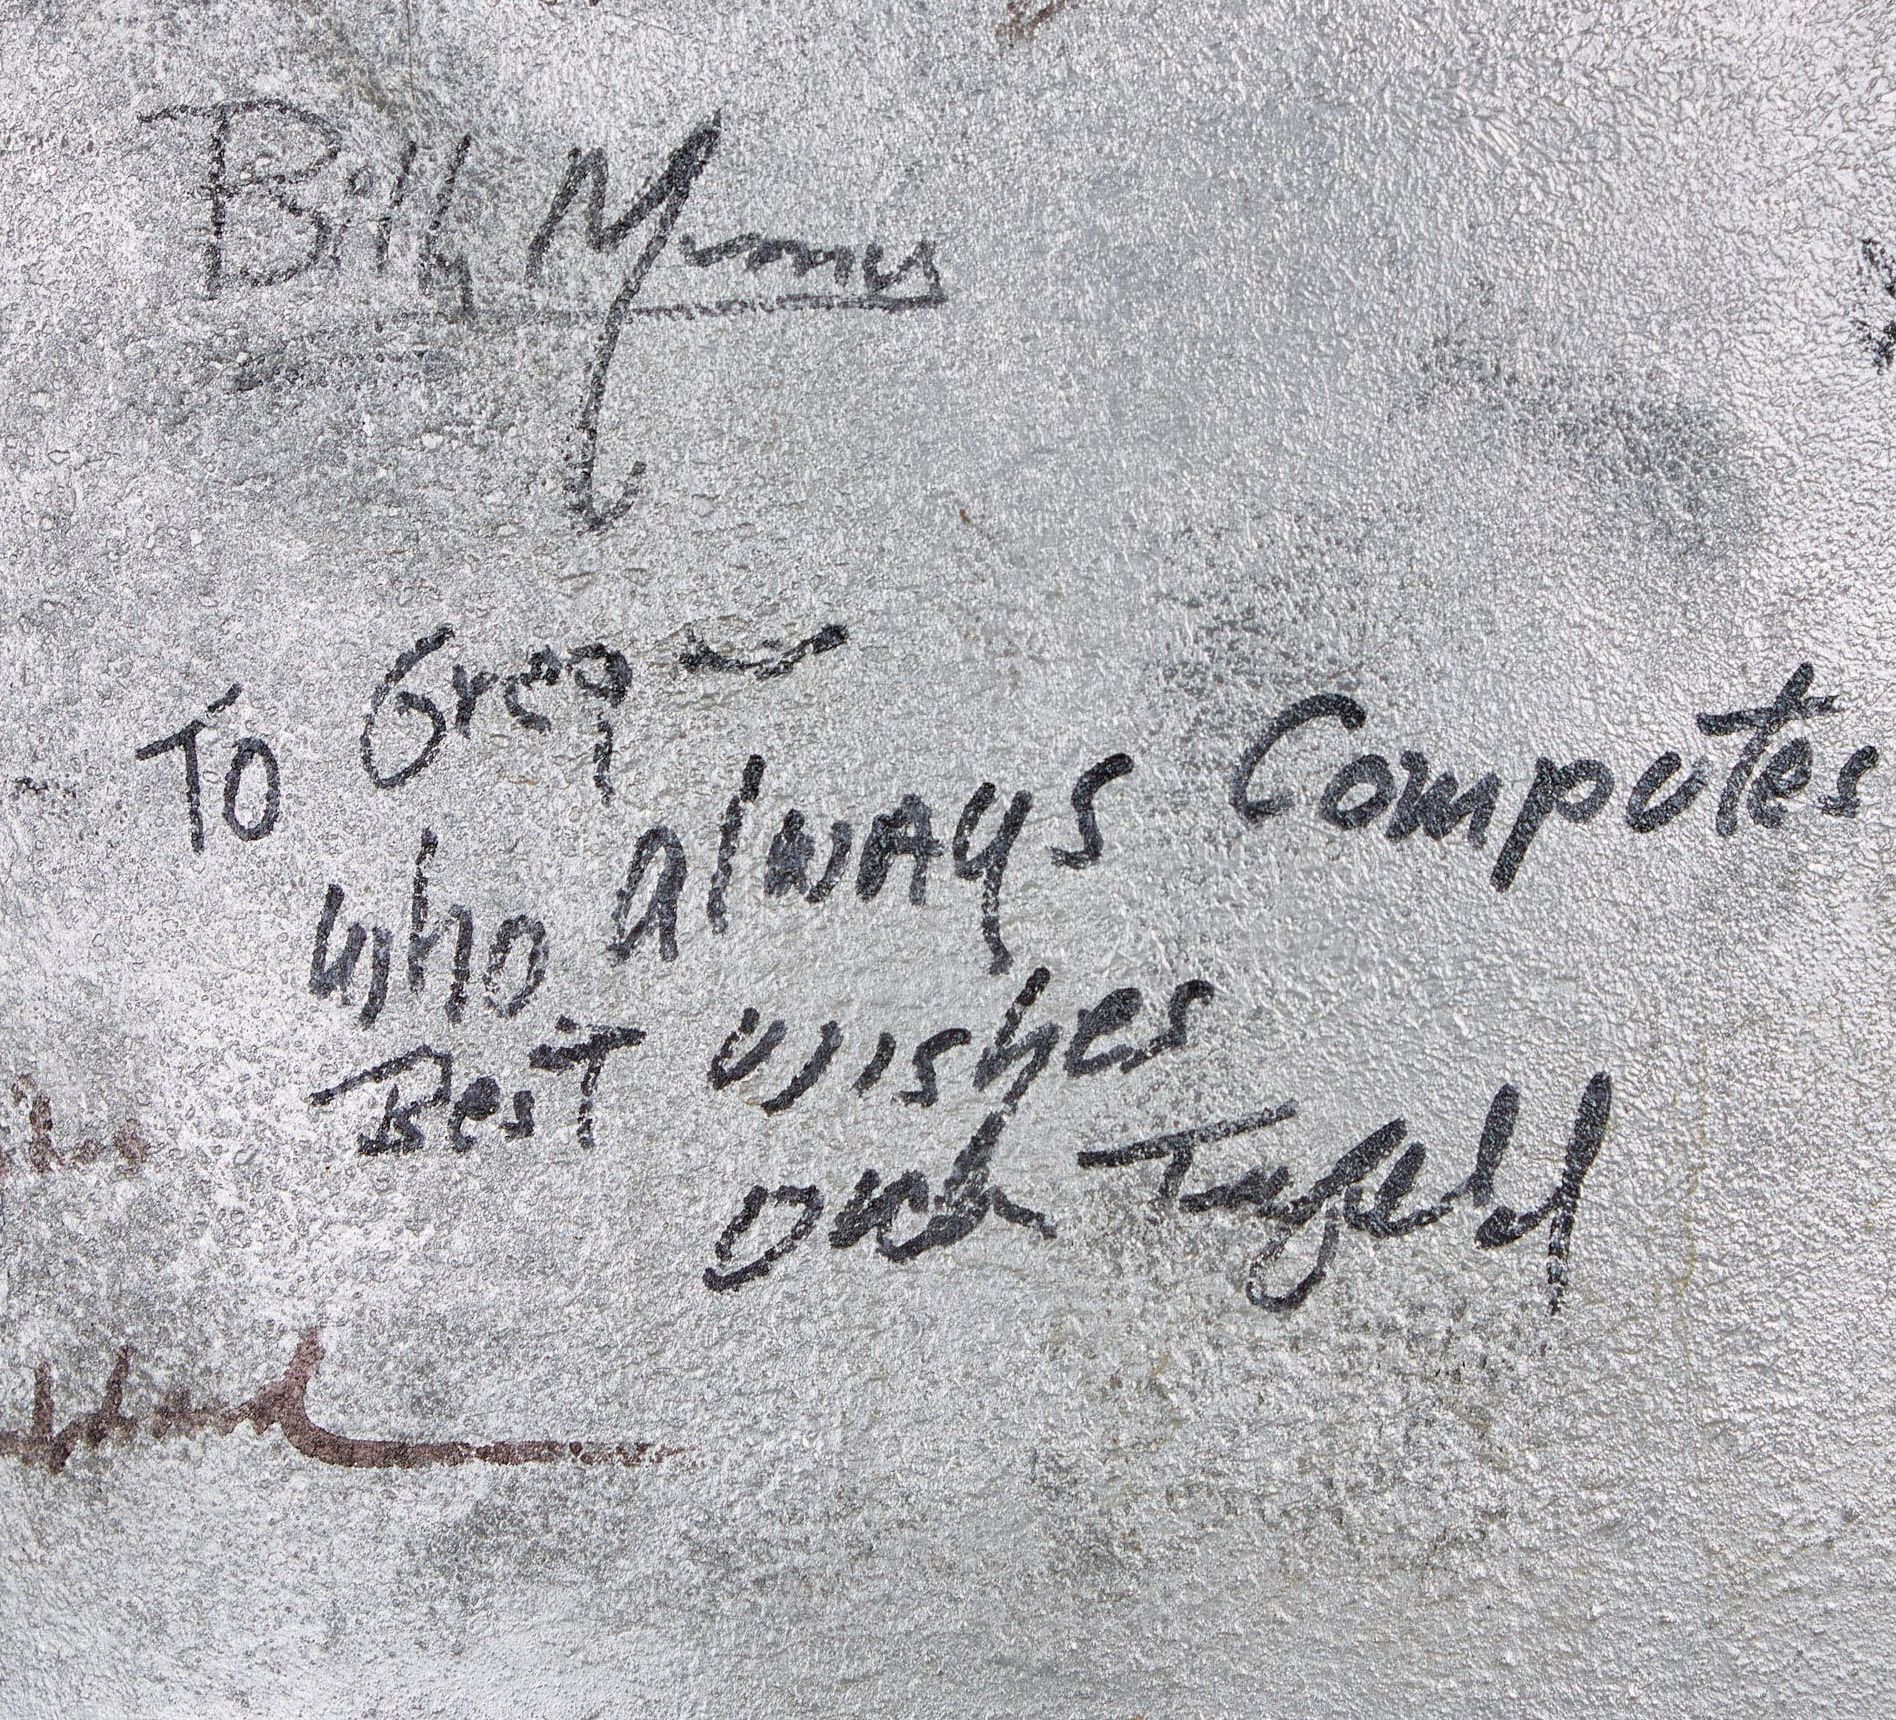 Bill Mumy
To Greg —
who always Computes
Best wishes
Dick Tufeld